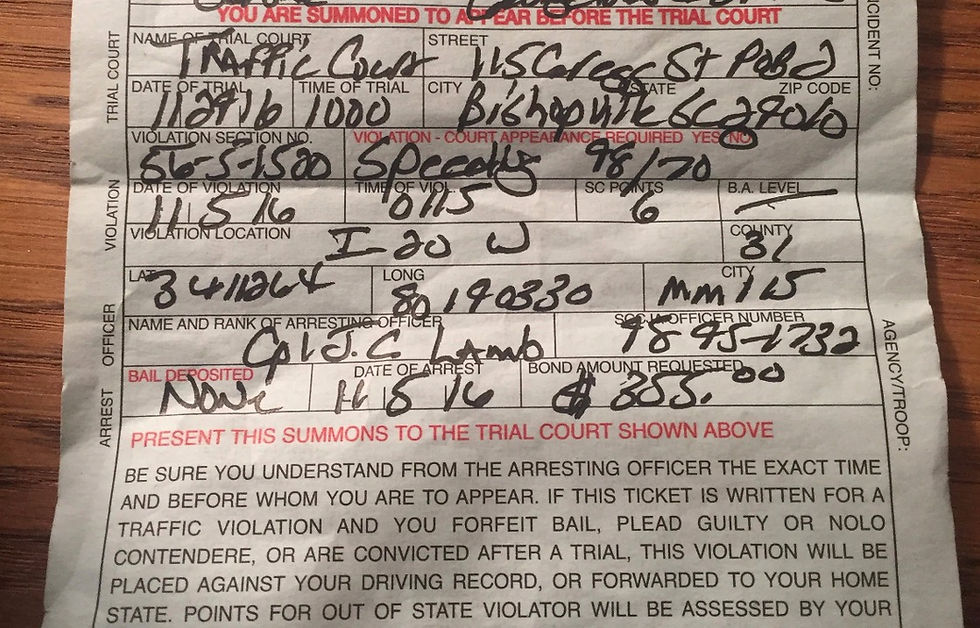 YOU ARE SUMMONED TO APPEAR BEFORE THE TRIAL COURT
NAME OF TRIAL COURT STREET
Traffic Court 115 St POB 2
DATE OF TRIAL TIME OF TRIAL CITY STATE ZIP CODE
11 29 16 1000 Bishopville SC 29010
VIOLATION SECTION NO. VIOLATION - COURT APPEARANCE REQUIRED YES NO
56-5-1520 Speeding 98/70
DATE OF VIOLATION TIME OF VIOL. SC POINTS B.A. LEVEL
11 5 16 0115 6 —
VIOLATION LOCATION COUNTY
I-20 W 31
LAT LONG CITY
3411264 80190330 mm 115
NAME AND RANK OF ARRESTING OFFICER SCCJA OFFICER NUMBER
Cpl J.C. Lamb 9895-1732
BAIL DEPOSITED DATE OF ARREST BOND AMOUNT REQUESTED
None 11 5 16 $ 355.00
PRESENT THIS SUMMONS TO THE TRIAL COURT SHOWN ABOVE
BE SURE YOU UNDERSTAND FROM THE ARRESTING OFFICER THE EXACT TIME
AND BEFORE WHOM YOU ARE TO APPEAR. IF THIS TICKET IS WRITTEN FOR A
TRAFFIC VIOLATION AND YOU FORFEIT BAIL, PLEAD GUILTY OR NOLO
CONTENDERE, OR ARE CONVICTED AFTER A TRIAL, THIS VIOLATION WILL BE
PLACED AGAINST YOUR DRIVING RECORD, OR FORWARDED TO YOUR HOME
STATE. POINTS FOR OUT OF STATE VIOLATOR WILL BE ASSESSED BY YOUR
TRIAL COURT
VIOLATION
OFFICER
ARREST
INCIDENT NO:
AGENCY/TROOP: